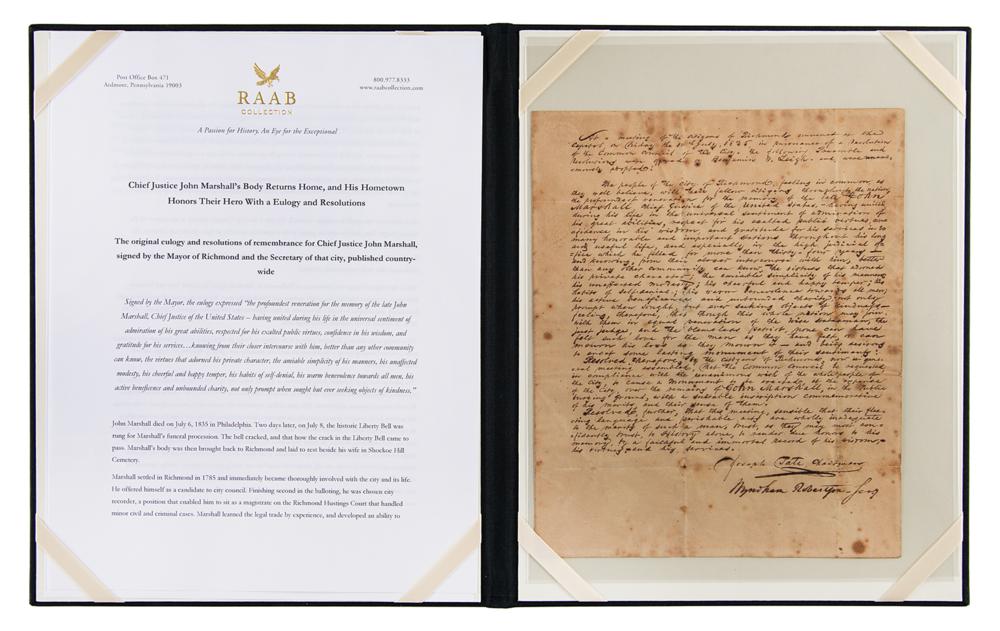 Post Office Box 471
Ardmore, Pennsylvania 19003
800.977.8333
www.raabcollection.com
RAAB
COLLECTION
A Passion for History. An Eye for the Exceptional
Chief Justice John Marshall's Body Returns Home, and His Hometown
Honors Their Hero With a Eulogy and Resolutions
The original eulogy and resolutions of remembrance for Chief Justice John Marshall,
signed by the Mayor of Richmond and the Secretary of that city, published country-
wide
Signed by the Mayor, the eulogy expressed "the profoundest veneration for the memory of the late John
Marshall, Chief Justice of the United States – having united during his life in the universal sentiment of
admiration of his great abilities, respected for his exalted public virtues, confidence in his wisdom, and
gratitude for his services…knowing from their closer intercourse with him, better than any other community
can know, the virtues that adorned his private character, the amiable simplicity of his manners, his unaffected
modesty, his cheerful and happy temper, his habits of self-denial, his warm benevolence towards all men, his
active beneficence and unbounded charity, not only prompt when sought but ever seeking objects of kindness."
John Marshall died on July 6, 1835 in Philadelphia. Two days later, on July 8, the historic Liberty Bell was
rung for Marshall's funeral procession. The bell cracked, and that how the crack in the Liberty Bell came to
pass. Marshall's body was then brought back to Richmond and laid to rest beside his wife in Shockoe Hill
Cemetery.
Marshall settled in Richmond in 1785 and immediately became thoroughly involved with the city and its life.
He offered himself as a candidate to city council. Finishing second in the balloting, he was chosen city
recorder, a position that enabled him to sit as a magistrate on the Richmond Hustings Court that handled
minor civil and criminal cases. Marshall learned the legal trade by experience, and developed an ability to
At a meeting of the citizens of Richmond convened at the
Capitol, on Friday the July, 1835 in pursuance of a Resolution
of the Common Council of the City, the following Preamble and
Resolutions were offered by Benjamin W. Leigh and were unani-
mously adopted:
The people of the City of Richmond, feeling in common, as
they well believe, with their fellow citizens throughout the nation,
the profoundest veneration for the memory of the late John
Marshall Chief Justice of the United States, having united
during his life in the universal sentiment of admiration of
his great abilities, respect for his exalted public virtues, con-
fidence in his wisdom and gratitude for his services in so
many honorable and important stations throughout his long
and useful life, and especially in the high judicial of-
fice which he filled for more than thirty-four years
and knowing, from their closer intercourse with him, better
than any other community can know, the virtues that adorned
his private character, the amiable simplicity of his manners
his unaffected modesty; his cheerful and happy temper; his
habits of self-denial; his warm benevolence towards all men;
his active beneficence and unbounded charity not only
prompt when sought but ever seeking objects of kindness
feeling, therefore, that though this whole nation may join
with them in equal veneration of the wise statesman, the
just judge, and the blameless patriot, none can have
felt such love for the man as they have felt, or can
mourn his loss as they mourn it and being desirous
to erect some lasting monument of their sentiments:
Resolved therefore, by the citizens of Richmond now in gen-
eral meeting assembled, that the Common Council be requested,
in compliance with the unanimous wish of the whole people of
the City, to cause a monument to be erected, at the expense
of the City, over the remains of John Marshall in the Public
burying ground, with a suitable inscription commemorative
of his merits, and their sense of them.
Resolved, further, That this meeting, sensible that their flee-
ting language and perishable are wholly inadequate
to the merits of such a man, trust, as they may most con-
fidently trust, to History alone, to render due honors to his
memory, by a faithful and immortal record of his wisdom,
his virtues and his services.
Joseph Tate Chairman
Wyndham Robertson Secy